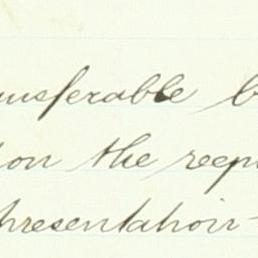 ansferable b
ion the reep
presentation